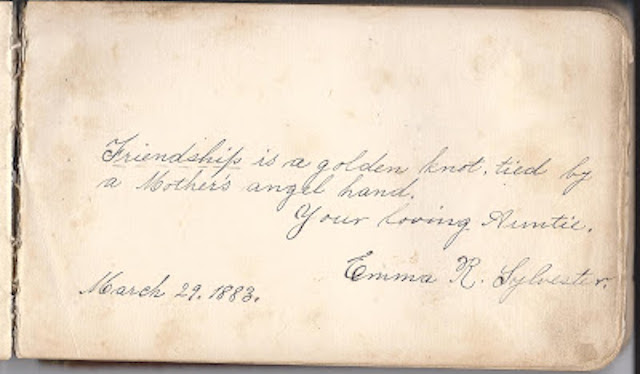 Friendship is a golden knot, tied by
a Mother's angel hand.
Your loving Auntie.
Emma R. Sylvester.
March 29. 1883.